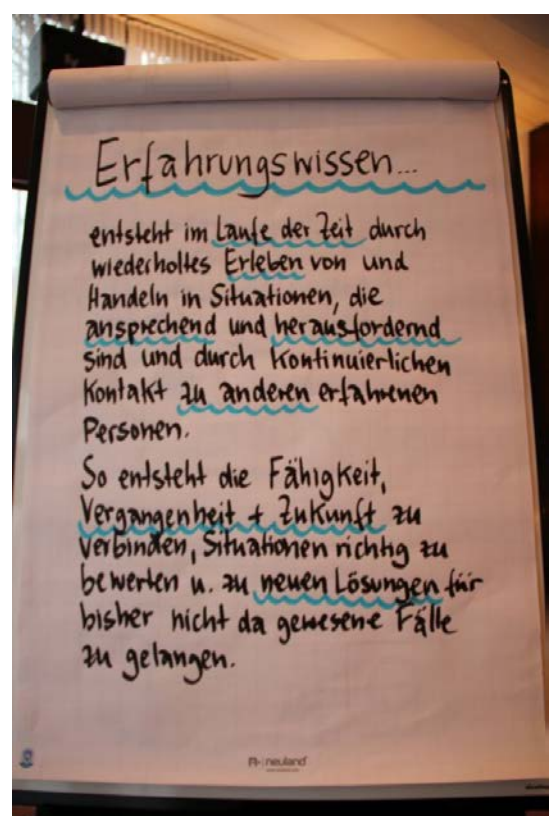 Erfahrungswissen...
entsteht im Laufe der Zeit durch
wiederholtes Erleben von und
Handeln in Situationen, die
ansprechend und herausfordernd
sind und durch kontinuierlichen
Kontakt zu anderen erfahrenen
Personen.
So entsteht die Fähigkeit,
Vergangenheit + Zukunft zu
verbinden, Situationen richtig zu
bewerten u. zu neuen Lösungen für
bisher nicht da gewesene Fälle
zu gelangen.
neuland